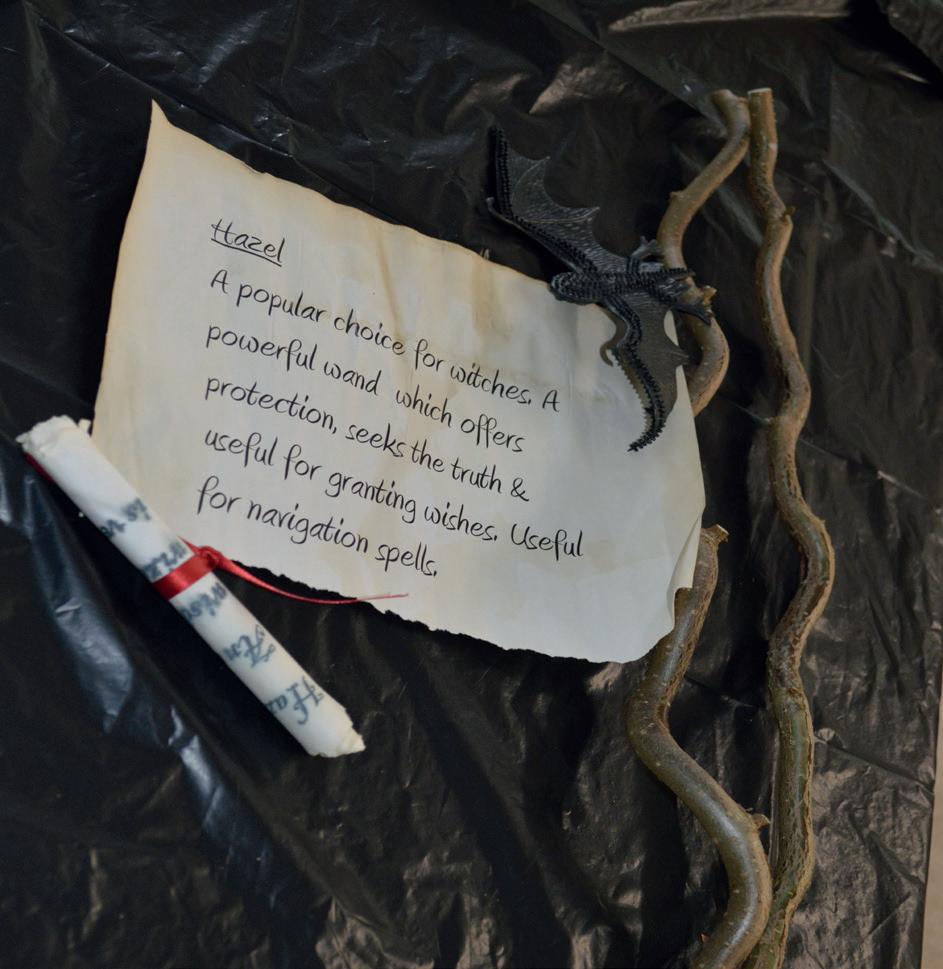 Hazel
A popular choice for witches. A
powerful wand which offers
protection, seeks the truth &
useful for granting wishes. Useful
for navigation spells.